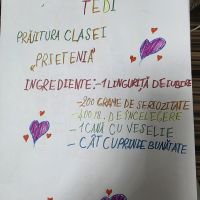 TEDI
PRĂJITURA CLASEI
„PRIETENIA”
INGREDIENTE:-1 LINGURIȚĂ DE IUBIRE
-200 GRAME DE SERIOZITATE
-400 ML DE ÎNCELEGERE
-1 CANĂ CU VESELIE
-CÂT CUPRINDE BUNĂTATE